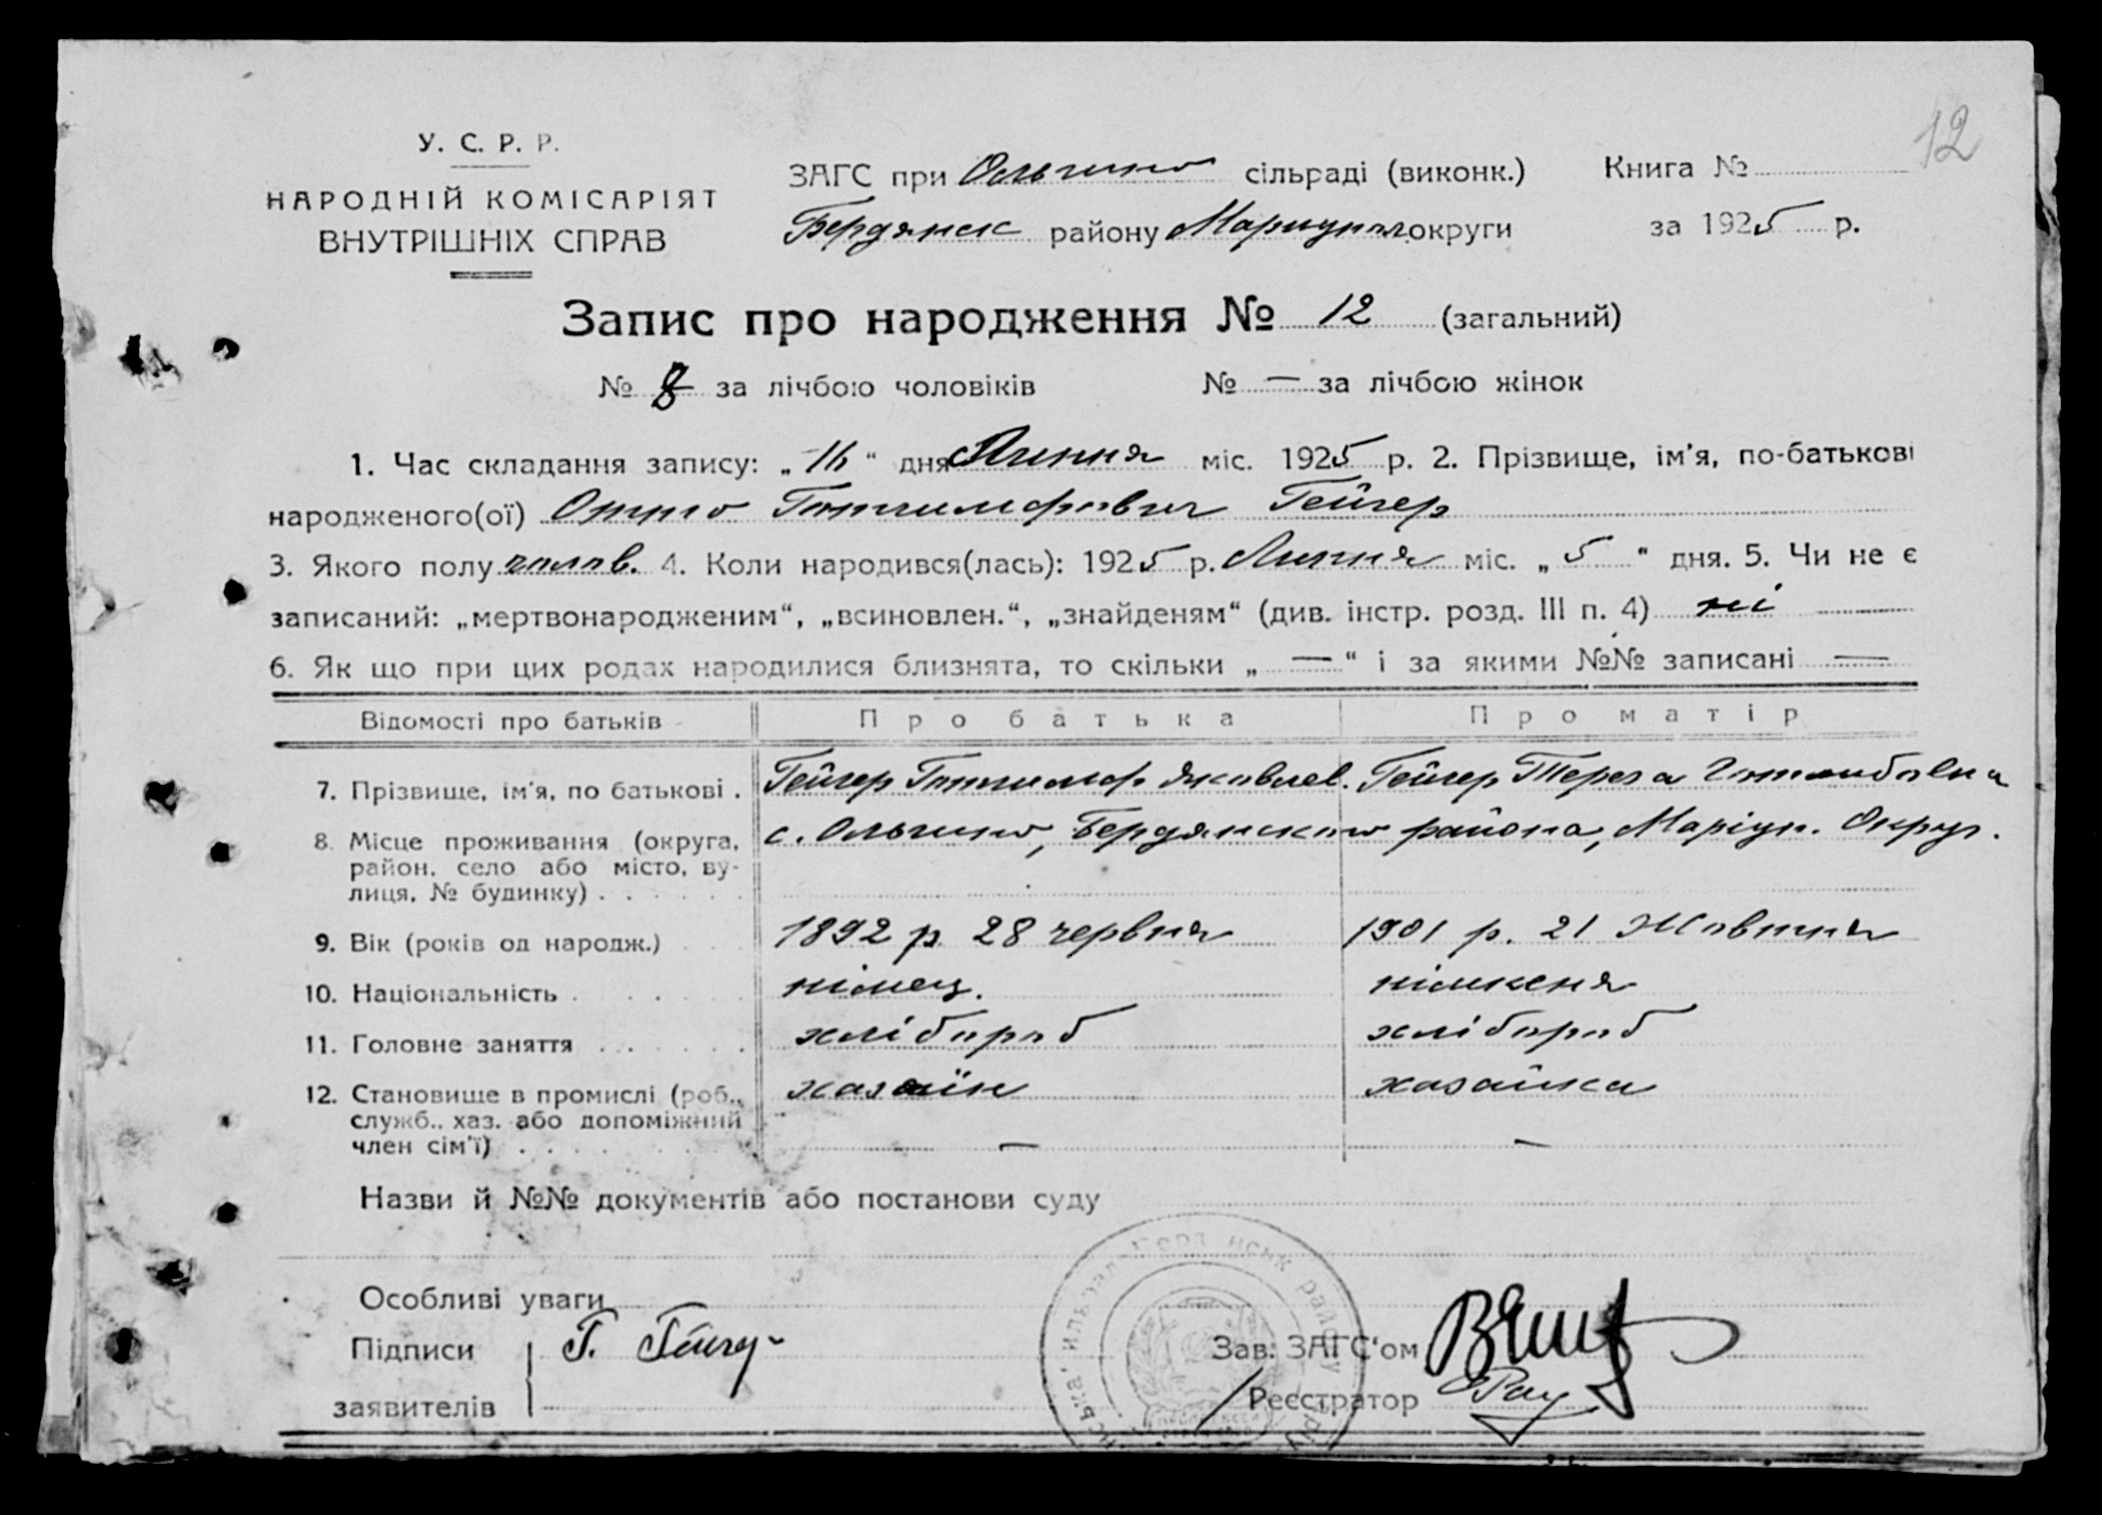 12
У. С. Р. Р.
НАРОДНІЙ КОМІСАРІЯТ
ВНУТРІШНІХ СПРАВ
ЗАГС при Ольгино сільраді (виконк.)
Бердянск району Мариупол. округи
Книга №
за 1925 р.
Запис про народження № 12 (загальний)
№ 8 за лічбою чоловіків № — за лічбою жінок
1. Час складання запису: „16“ дня Липня міс. 1925 р. 2. Прізвище, ім'я, по-батькові
народженого(ої) Отто Готлилфович Гейгер
3. Якого полу чолов. 4. Коли народився(лась): 1925 р. Липня міс. „5“ дня. 5. Чи не є
записаний: „мертвонародженим“, „всиновлен.“, „знайденям“ (див. інстр. розд. III п. 4) ні
6. Як що при цих родах народилися близнята, то скільки „ — “ і за якими №№ записані —
Відомості про батьків Про батька Про матір
7. Прізвище, ім'я, по батькові . Гейгер Яковлев. Гейгер Тереза
8. Місце проживання (округа, с. Ольгино, Бердянского района, Маріуп. Округ.
район, село або місто, ву-
лиця, № будинку) . . . . . .
9. Вік (років од народж.) 1892 р 28 червня 1901 р. 21 Жовтня
10. Національність . німец. німкеня
11. Головне заняття . . хлібороб хлібороб
12. Становище в промислі (роб., хазаїн хазайка
служб., хаз. або допоміжний
член сім'ї) . . . . — —
Назви й №№ документів або постанови суду
Особливі уваги
Підписи Г. Гейгер Зав. ЗАГС'ом
заявителів Реєстратор